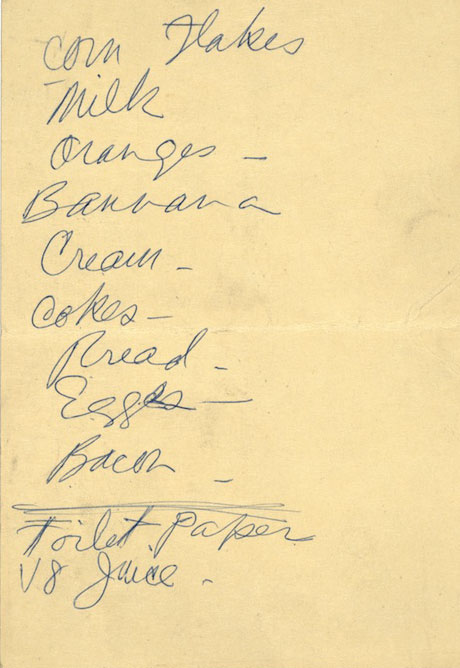 Corn Flakes
Milk
Oranges -
Bannana
Cream -
Cokes -
Bread -
Eggs -
Bacon -
Toilet Paper
V8 Juice -